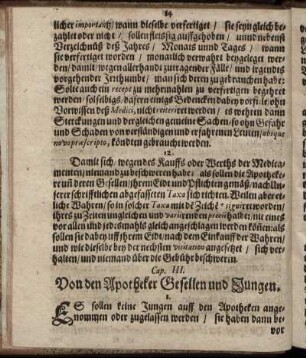 14
licher importantz/ wann dieselbe verfertiget / sie seyn gleich be-
zahlet oder nicht / sollen fleissig auffgehoben / unnd nebenst
Verzeichnüß deß Jahres / Monats unnd Tages / wann
sie verfertiget worden / monatlich verwahret beygeleget wer-
den/ damit wegen allerhand zutragender Fälle/ und irgendes
vorgehender Irrthumbe/ man sich deren zugebrauchen habe:
Solte auch ein recept zu mehrmahlen zu verfertigen begehret
werden / solselbigs, dafern einigs Bedencken dabey vorfiele ohn
Vorwissen deß Medici, nicht reiteriret werden / es wehren dann
Sterckungen und dergleichen gemeine Sachen/ so ohn Gefahr
und Schaden von verständigen und erfahrenen Leuten/ absque
novo praescripto, köndten gebraucht werden.
12.
Damit sich/ wegen des Kauffs oder Werths der Medica-
menten/ niemand zu beschweren habe: als sollen die Apotheke-
re uñ deren Gesellen/ ihrem Eidt und Pflichten gemäß/ nach Un-
serer schrifftlichen abgefasseten Taxa sich richten. Weilen aber etz-
liche Wahren/ so in solcher Taxa mit dē Zeichē * signiret worden/
ihres zu Zeiten ungleichen und variirenden precii halber/ mit eines
vor allen und jedesmahls gleich angeschlagen werden können: als
sollen sie dabey uff ihrem Eidt/ nach dem Einkauff der Wahren/
und wie dieselbe bey der nechsten visitation angesetzet / sich ver-
halten/ und niemand über die Gebühr beschweren.
Cap. III.
Von den Apotheker Gesellen und Jungen.
1.
ES sollen keine Jungen auff den Apotheken ange-
nommen oder zugelassen werden / sie haben dann be-
vor